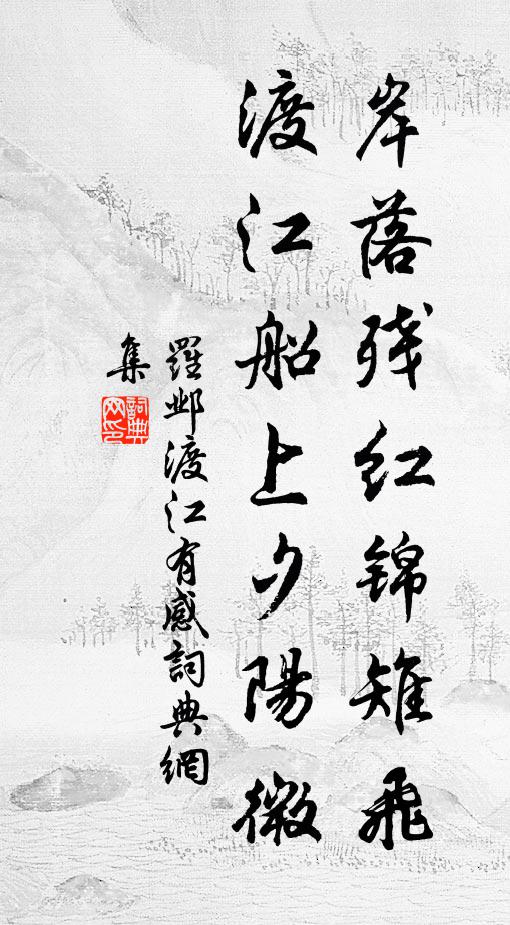 岸落残红锦雉飞
渡江船上夕陽微
羅邺渡江有感詞典網
集
詞典網印